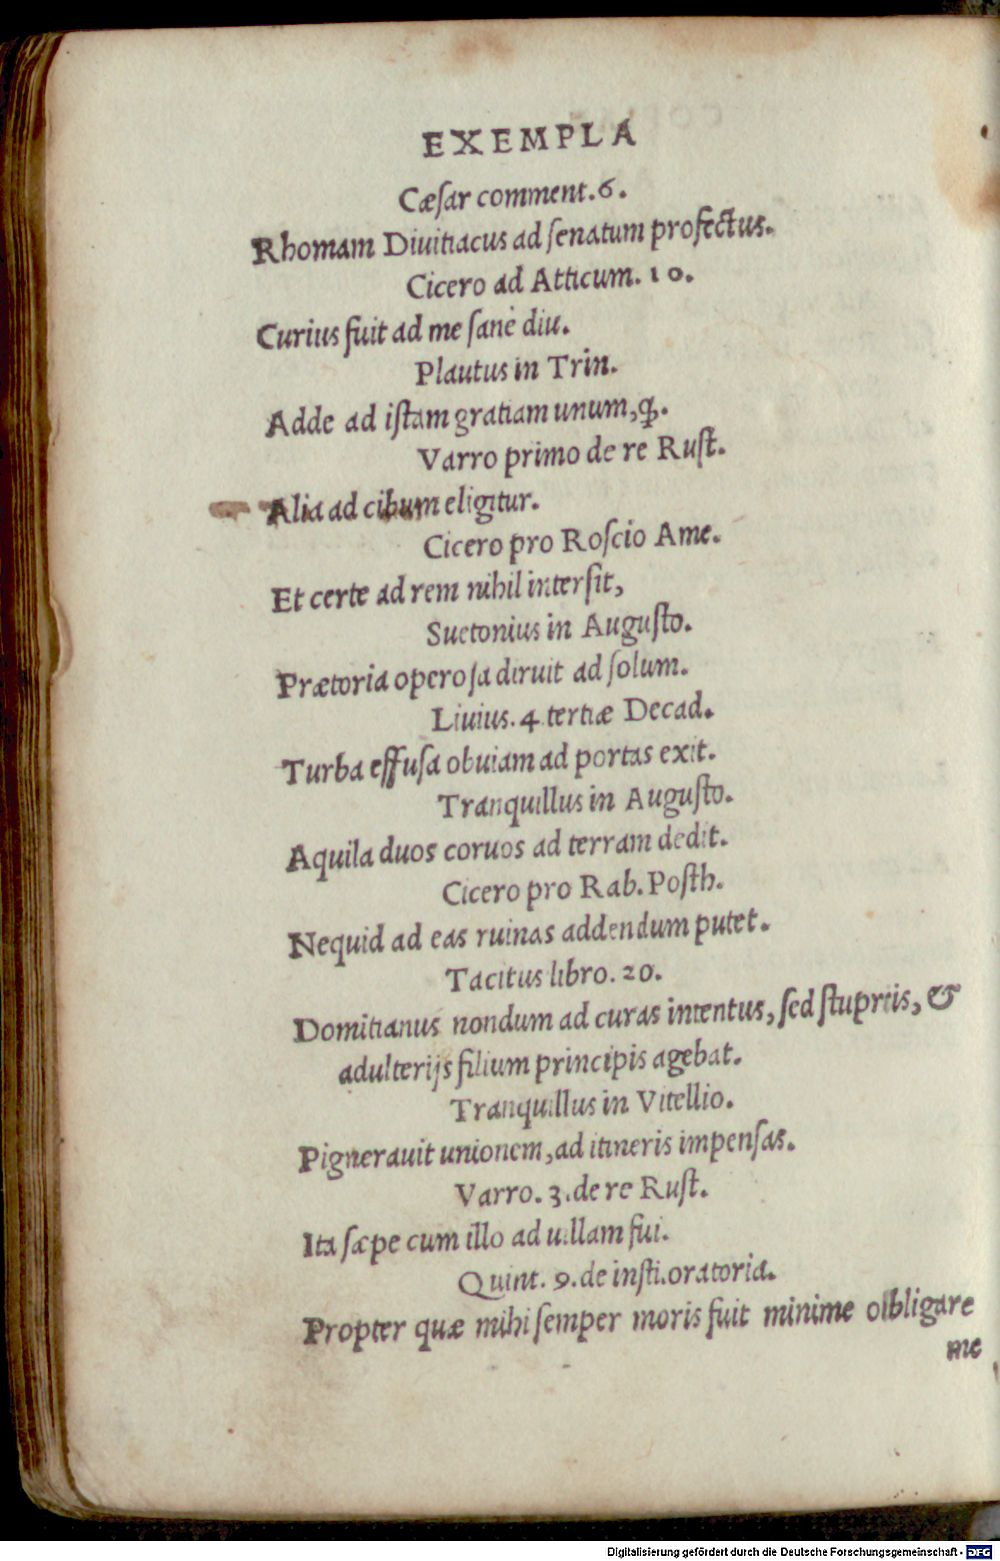 EXEMPLA
Cæſar comment.6.
Rhomam Diuitiacus ad ſenatum profectus.
Cicero ad Atticum. 10.
Curius fuit ad me ſanè diu.
Plautus in Trin.
Adde ad iſtam gratiam unum,ꝗ.
Varro primo de re Ruſt.
Alia ad cibum eligitur.
Cicero pro Roſcio Ame.
Et certe ad rem nihil interſit,
Suetonius in Auguſto.
Prætoria operoſa diruit ad ſolum.
Liuius. 4 tertiæ Decad.
Turba effuſa obuiam ad portas exit.
Tranquillus in Auguſto.
Aquila duos coruos ad terram dedit.
Cicero pro Rab. Poſth.
Nequid ad eas ruinas addendum putet.
Tacitus libro. 20.
Domitianus nondum ad curas intentus, ſed ſtupris, &
adulterijs filium principis agebat.
Tranquillus in Vitellio.
Pignerauit unionem, ad itineris impenſas.
Varro. 3. de re Ruſt.
Ita ſæpe cum illo ad uillam fui.
Quint. 9. de inſti. oratoria.
Propter quæ mihi ſemper moris fuit minime olbligare
me
Digitalisierung gefördert durch die Deutsche Forschungsgemeinschaft - DFG